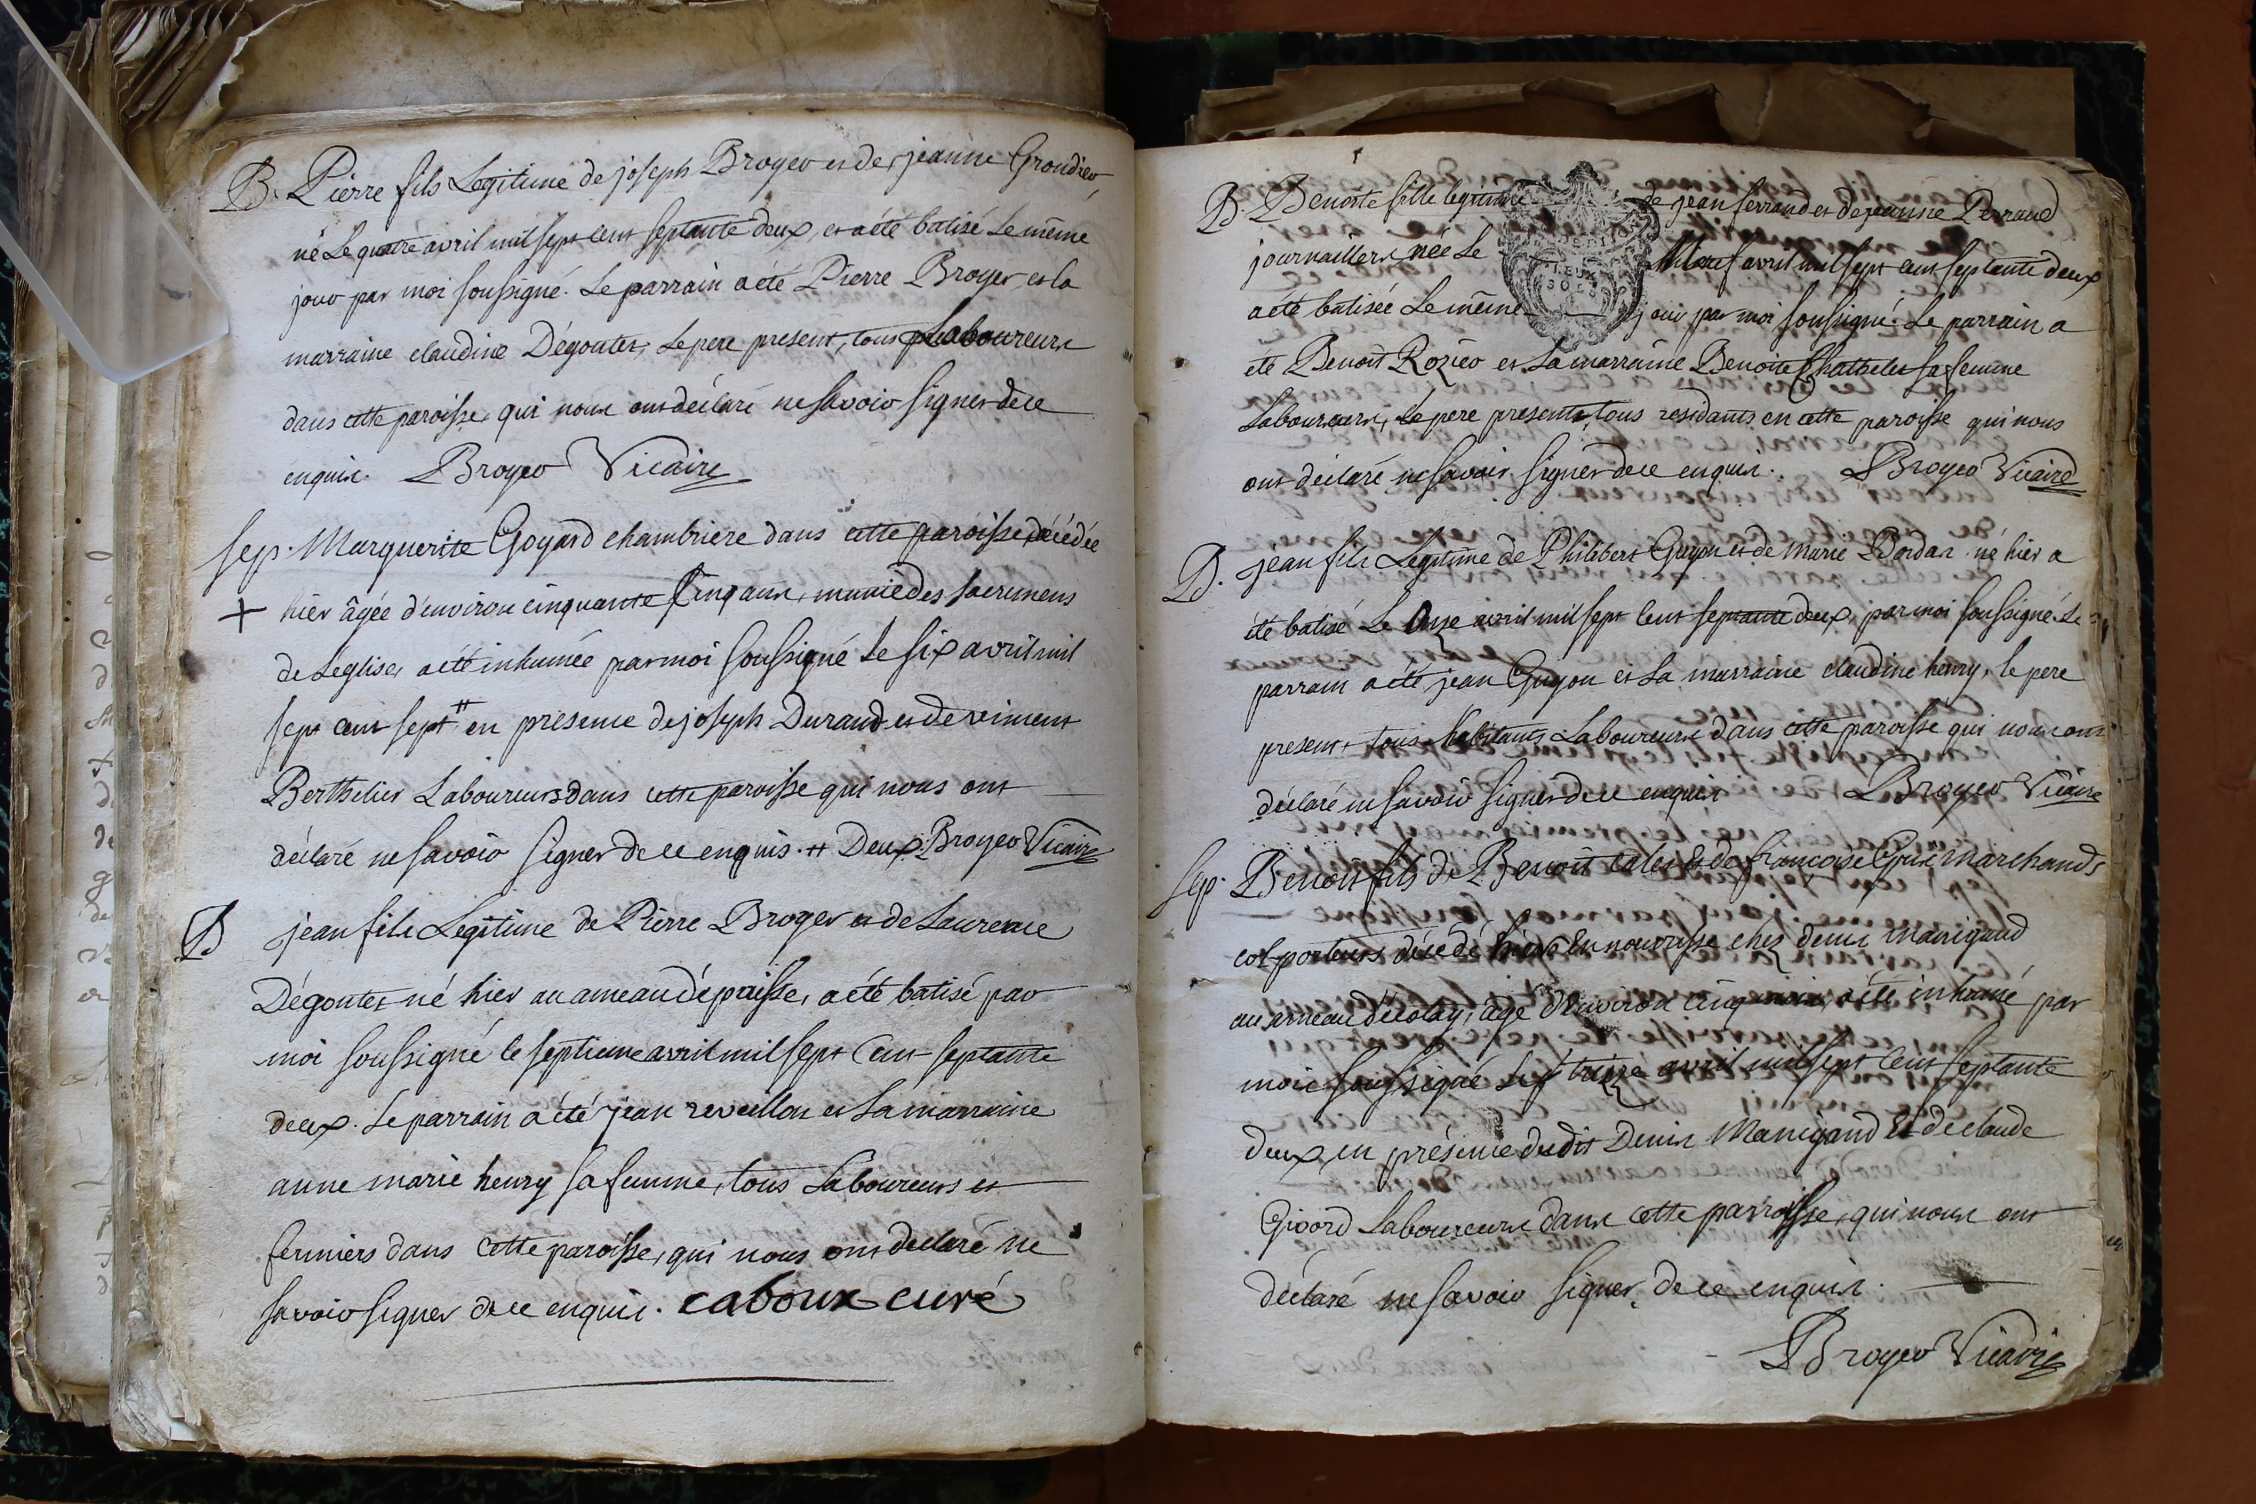 B. Pierre fils Legitime de joseph Broyer et de jeanne Grondier
né Le quatre avril mil sept cent septante deux, et a été batisé Le même
jour par moi soussigné. Le parrain a été Pierre Broyer, et la
marraine claudine Dégoutes, Le pere present, tous Laboureurs
dans cette paroisse, qui nous ont déclaré ne savoir signer de ce
enquis. Broyer Vicaire
sep. Marguerite Goyard chambriere dans cette paroisse, décédée
+ hier âgée d'environ cinquante cinq ans, munie des sacremens
de Leglise, a été inhumée par moi soussigné Le six avril mil
sept cent sept # en presence de joseph Durand et de vincent
Berthelier Laboureurs dans cette paroisse qui nous ont
déclaré ne savoir signer de ce enquis. # Deux. Broyer Vicaire
B jean fils Legitime de Pierre Broyer et de Laurence
Dégoutes né hier au ameau dépaisse, a été batisé par
moi soussigné le septieme avril mil sept cent septante
deux. Le parrain a été jean reveillon et La marraine
anne marie henry sa femme, tous Laboureurs et
fermiers dans cette paroisse, qui nous ont declaré ne
savoir signer de ce enquis. caboux curé
B. Benoite fille legitime de jean ferrand et de jeanne Perraud
journaillers née Le neuf avril mil sept cent septante deux
a été batisée Le même jour par moi soussigné. Le parrain a
été Benoit Rozier et La marraine Benoite Chathelet sa femme
Laboureurs, Le pere present, tous residants en cette paroisse qui nous
ont déclaré ne savoir signer de ce enquis. Broyer Vicaire
B. jean fils Legitime de Philibert Guyon et de Marie Bordas né hier a
été batisé Le Onze avril mil sept cent septante deux, par moi soussigné. Le
parrain a été jean Guyon et La marraine claudine henry, le pere
present tous habitants Laboureurs dans cette paroisse qui nous ont
déclaré ne savoir signer de ce enquis Broyer Vicaire
sep. Benoit fils de Benoit et de françoise marchands
col-porteurs décédé hier En nourrisse chez denis Manigand
au ameau, âgé d'environ cinq mois, a été inhumé par
moi soussigné Le treize avril mil sept cent septante
deux, en présence dudit Denis Manigand Et de claude
Givord Laboureurs dans cette parroisse, qui nous ont
déclaré ne savoir signer de ce enquis.
Broyer Vicaire